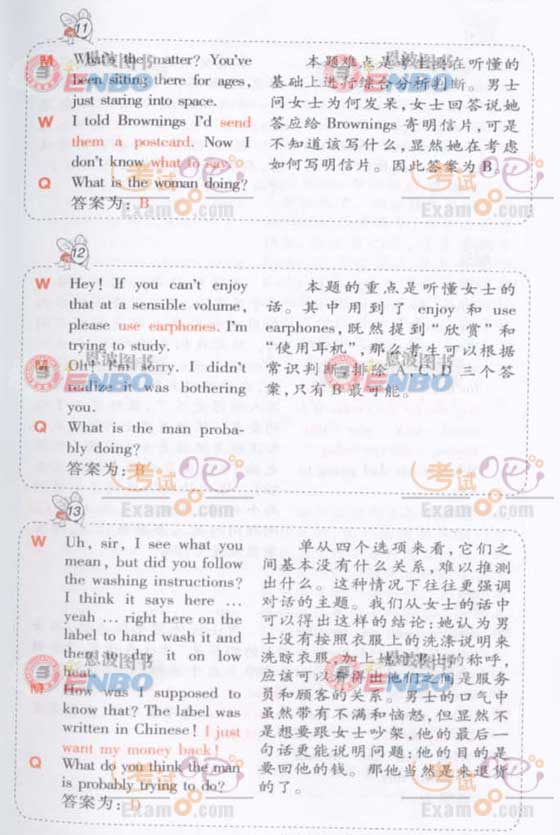 11
M What's the matter? You've
been sitting there for ages,
just staring into space.
W I told Brownings I'd send
them a postcard. Now I
don't know what to say.
Q What is the woman doing?
答案为：B
本题难点是考生需在听懂的
基础上进行综合分析判断。男士
问女士为何发呆，女士回答说她
答应给 Brownings 寄明信片，可是
不知道该写什么，显然她在考虑
如何写明信片。因此答案为 B。
12
W Hey! If you can't enjoy
that at a sensible volume,
please use earphones. I'm
trying to study.
M Oh! I'm sorry. I didn't
realize it was bothering
you.
Q What is the man proba-
bly doing?
答案为：B
本题的重点是听懂女士的
话。其中用到了 enjoy 和 use
earphones，既然提到“欣赏”和
“使用耳机”，那么考生可以根据
常识判断，排除 A、C、D 三个答
案，只有 B 最可能。
13
W Uh, sir, I see what you
mean, but did you follow
the washing instructions?
I think it says here ...
yeah ... right here on the
label to hand wash it and
then to dry it on low
heat.
M How was I supposed to
know that? The label was
written in Chinese! I just
want my money back!
Q What do you think the man
is probably trying to do?
答案为：D
单从四个选项来看，它们之
间基本没有什么关系，难以推测
出什么。这种情况下往往更强调
对话的主题。我们从女士的话中
可以得出这样的结论：她认为男
士没有按照衣服上的洗涤说明来
洗晾衣服，加上她对男士的称呼，
应该可以看得出他们之间是服务
员和顾客的关系。男士的口气中
虽然带有不满和恼怒，但显然不
是想要跟女士吵架，他的最后一
句话更能说明问题：他的目的是
要回他的钱。那他当然是来退货
的了。
恩波图书
ENBO
考试吧
Exam8.com